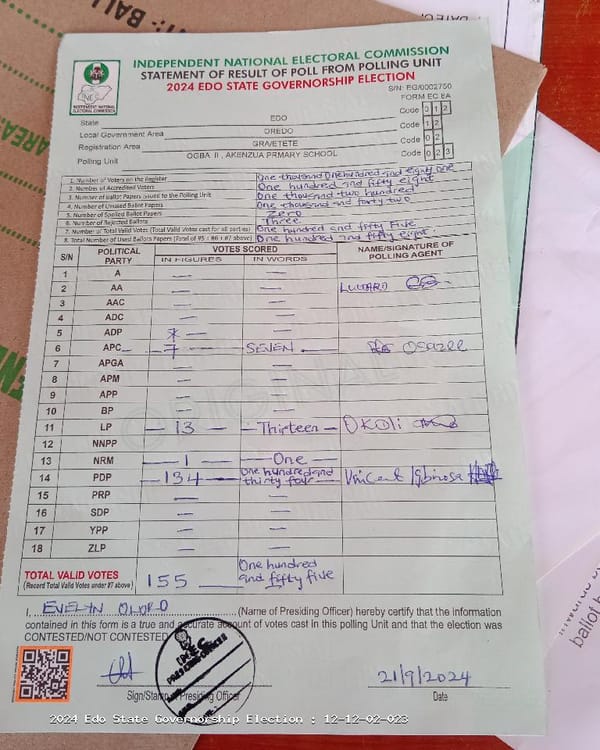 INDEPENDENT NATIONAL ELECTORAL COMMISSION
STATEMENT OF RESULT OF POLL FROM POLLING UNIT
2024 EDO STATE GOVERNORSHIP ELECTION
S/N: EG/0002750
FORM EC 8A
INDEPENDENT NATIONAL ELECTORAL COMMISSION
State EDO Code 0 1 2
Local Government Area OREDO Code 1 2
Registration Area GRA/ETETE Code 0 2
Polling Unit OGBA II , AKENZUA PRMARY SCHOOL Code 0 2 3
1. Number of Voters on the Register One thousand One hundred and eighty one
2. Number of Accredited Voters One hundred and fifty eight
3. Number of Ballot Papers Issued to the Polling Unit One thousand two hundred
4. Number of Unused Ballot Papers One thousand and forty two
5. Number of Spoiled Ballot Papers Zero
6. Number of Rejected Ballots Three
7. Number of Total Valid Votes (Total Valid Votes cast for all parties) One hundred and fifty Five
8. Total Number of Used Ballots Papers (Total of #5 + #6 + #7 above) One hundred and fifty eight.
S/N POLITICAL PARTY VOTES SCORED NAME/SIGNATURE OF POLLING AGENT
IN FIGURES IN WORDS
1 A — —
2 AA — —
3 AAC — —
4 ADC — —
5 ADP — —
6 APC 7 SEVEN Osazee
7 APGA — —
8 APM — —
9 APP — —
10 BP — —
11 LP — 13 — Thirteen — Okoli
12 NNPP — —
13 NRM — 1 — One —
14 PDP — 134 — One hundred and thirty four Vincent Igbinosa
15 PRP — —
16 SDP — —
17 YPP — —
18 ZLP — —
TOTAL VALID VOTES 155 One hundred and fifty five
(Record Total Valid Votes under #7 above)
I, EVELYN (Name of Presiding Officer) hereby certify that the information
contained in this form is a true and accurate account of votes cast in this polling Unit and that the election was
CONTESTED/NOT CONTESTED
INEC
PRESIDING OFFICER
21/9/2024
Sign/Stamp of Presiding Officer Date
2024 Edo State Governorship Election : 12-12-02-023